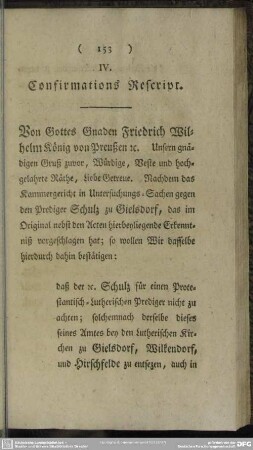 ( 153 )
IV.
Confirmations Reſcript.
Von Gottes Gnaden Friedrich Wil-
helm König von Preußen ꝛc. Unſern gnä-
digen Gruß zuvor, Würdige, Veſte und hoch-
gelahrte Räthe, liebe Getreue. Nachdem das
Kammergericht in Unterſuchungs-Sachen gegen
den Prediger Schulz zu Gielsdorf, das im
Original nebſt den Acten hierbeyliegende Erkennt-
niß vorgeſchlagen hat; ſo wollen Wir daſſelbe
hierdurch dahin beſtätigen:
daß der ꝛc. Schulz für einen Prote-
ſtantiſch-Lutheriſchen Prediger nicht zu
achten; ſolchemnach derſelbe dieſes
ſeines Amtes bey den Lutheriſchen Kir-
chen zu Gielsdorf, Wilkendorf,
und Hirſchfelde zu entſezen, auch in